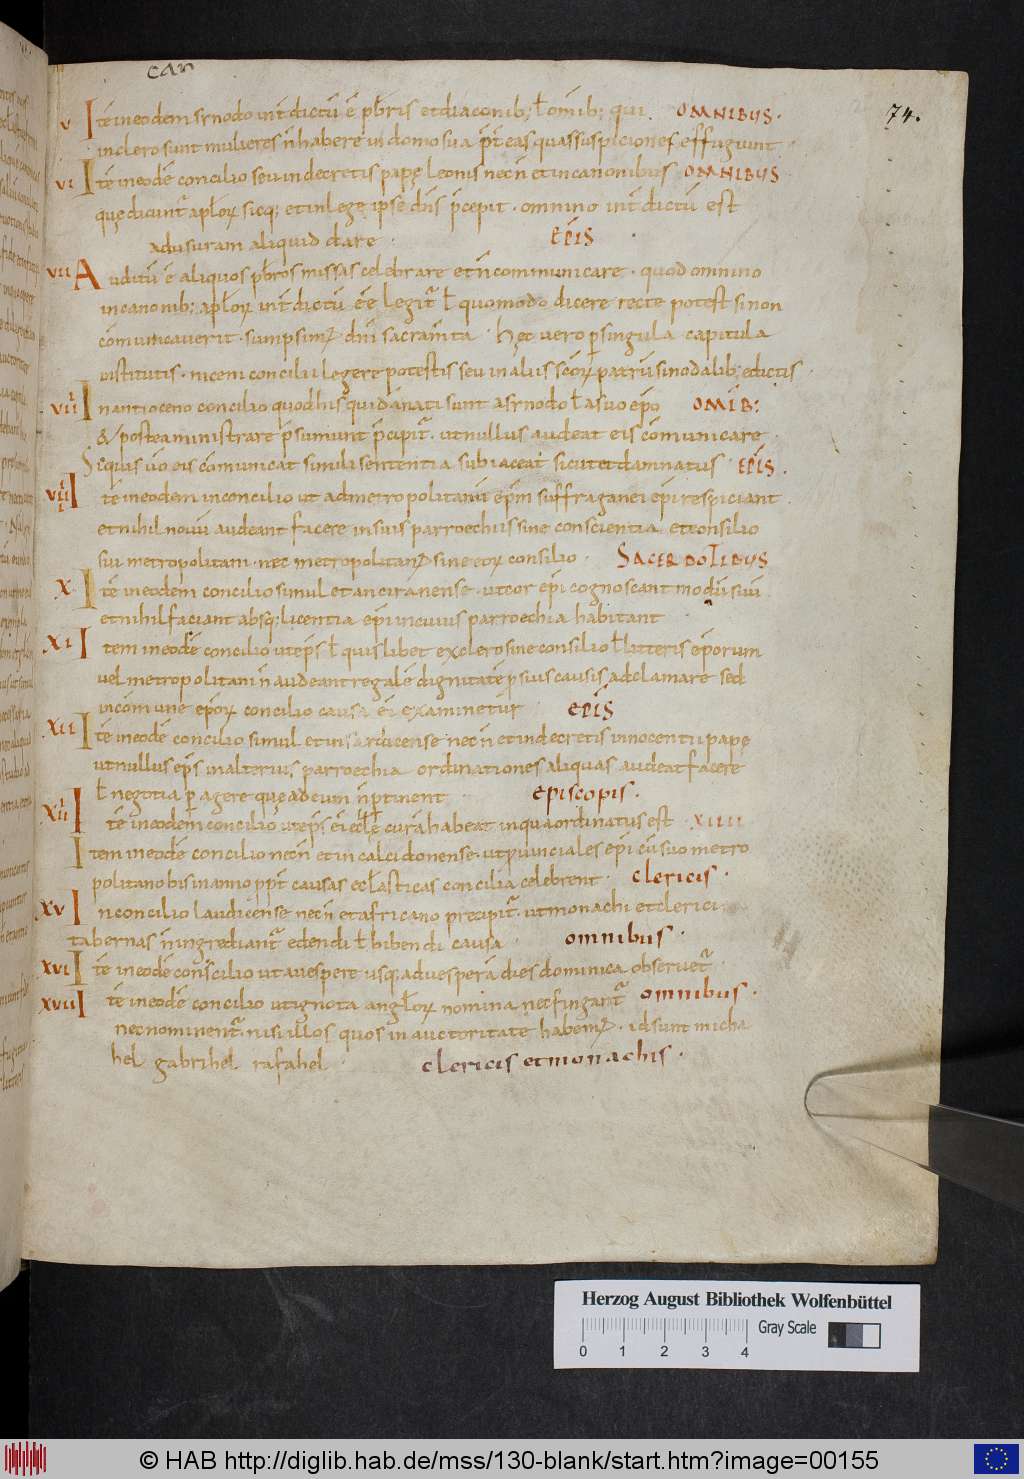 can
74.
v Itē in eodem sẏnodo int̄dictū ē p̄bris et diaconib; ł omīb; qui OMNIBUS.
in clero sunt mulieres n̄ habere in domo sua p̄t eas quas suspiciones effugiunt
vi Itē in eodē concilio seu in decretis papę leonis necn̄ et in canonibus OMNIBUS
quę dicunt̄ apłoꝝ sicq; et in lege ipse dn̄s p̄cepit · omnino int̄dictū est
ad usuram aliquid dare · EP̄IS
vii Auditū ē aliquos p̄bros missas celebrare et n̄ communicare · quod omnino
in canonib; apłoꝝ int̄dictū eē legit̄ ł quomodo dicere recte potest si non
cōmunicaverit · sumpsim; dn̄i sacram̄ta · Hęc vero p̱ singula capitula
institutis · niceni concilii legere potestis seu in aliis sc̄oꝝ patrū sinodalib; edictis
viii In antioceno concilio quod his qui dānati sunt a sẏnodo ł a suo ep̄o OMIB:
& postea ministrare p̄sumunt p̄cipit̄ · ut nullus audeat eis cōmunicare
Siquis ūo eis cōmunicat simili sententia subiaceat sicut et damnatus EP̄IS.
viiii Itē in eodem in concilio ut ad metropolitanū ep̄m suffraganei ep̄i respiciant
et nihil novū audeant facere in suis parroechiis sine conscientia et consilio
sui metropolitani · nec metropolitan; sine eoꝝ consilio · SACERDOTIBUS
x Itē in eodem concilio simul et anciranense · ut cor ep̄i cognoscant modū suū
et nihil faciant absq; licentia ep̄i in cuius parroechia habitant
xi Item in eodē concilio ut ep̄s ł quislibet ex clero sine consilio ł litteris ep̄orum
vel metropolitani n̄ audeant regalē dignitatē p̱ suis causis adclamare sed
in cōmune ep̄oꝝ concilio causa ei examinetur EP̄IS
xii Itē in eodē concilio simul et in sardicense necn̄ et in decretis innocentii papę
ut nullus ep̄s in alterius parroechia ordinationes aliquas audeat facere
ł negotia p̱agere que ad eum n̄ p̱tinent episcopis.
xiii Itē in eodem concilio ut ep̄s ei eccłę curā habeat in qua ordinatus est xiiii
Item in eodē concilio necn̄ et in calcidonense · ut p̱vinciales ep̄i cū suo metro
politano bis in anno ppt̄ causas eccłasticas concilia celebrent · clericis.
xv In concilio laudicense necn̄ et africano precipit̄ · ut monachi et clerici
tabernas n̄ ingrediant̄ edendi ł bibendi causa · omnibus.
xvi Itē in eodē concilio ut a vespere usq; ad vesperā dies dominica observet̄
xvii Itē in eodē concilio ut ignota angłoꝝ nomina nec fingant̄ omnibus.
nec nominent̄ nisi illos quos in auctoritate habem; · id sunt micha
hel gabrihel rafahel · clericis et monachis.
Herzog August Bibliothek Wolfenbüttel
Gray Scale
0 1 2 3 4
© HAB http://diglib.hab.de/mss/130-blank/start.htm?image=00155